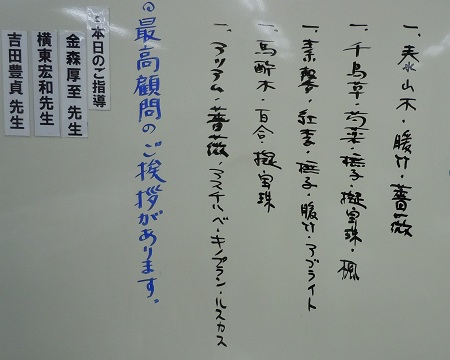 一、夫水山木・暖竹・薔薇
一、千鳥草・芍薬・撫子・擬宝珠・楓
一、素馨・撫子・暖竹・アブライト
一、馬酔木・百合・擬宝珠
一、アリアム・薔薇・アスチルベ・キノブラン・ルスカス
◎最高顧問のご挨拶があります。
本日のご指導
金森厚至 先生
横東宏和 先生
吉田豊貞 先生